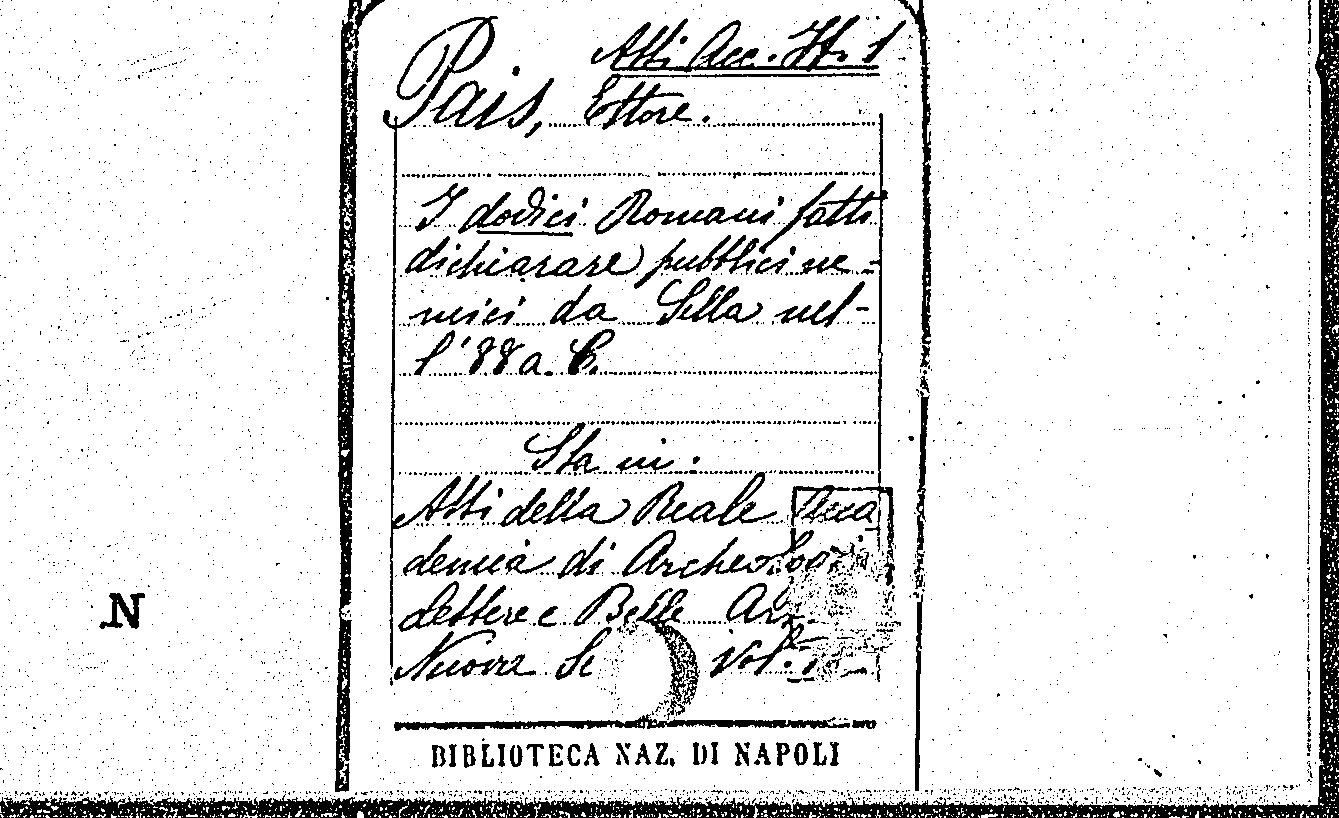 Atti Acc.
Pais, Ettore.
I dodici Romani fatti
dichiarare pubblici ne-
mici da Silla nel-
l'88 a. C.
Sta in:
Atti della Reale Acca
demia di Archeologi
Lettere e Belle Ar
Nuova Se Vol.
N
BIBLIOTECA NAZ. DI NAPOLI